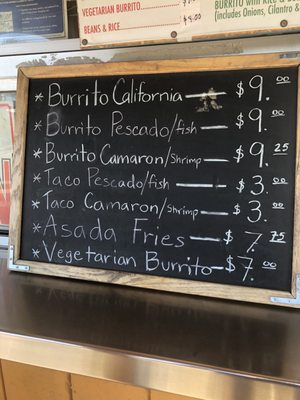 VEGETARIAN BURRITO
BEANS & RICE
BURRITO
(includes Onions, Cilantro &
* Burrito California — $9.00
* Burrito Pescado/fish — $9.00
* Burrito Camaron/Shrimp — $9.25
* Taco Pescado/fish — $3.00
* Taco Camaron/Shrimp — $3.00
* Asada Fries — $7.75
* Vegetarian Burrito — $7.00